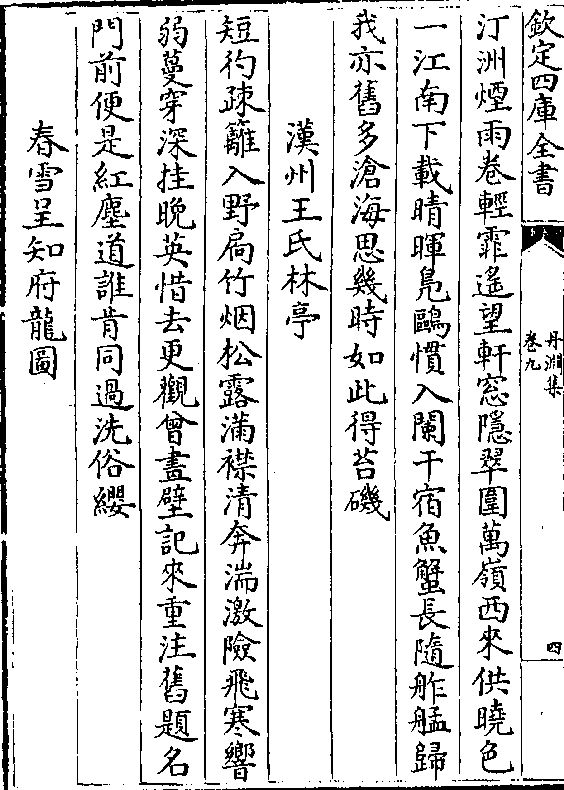 欽定四庫全書
丹淵集
卷九
四
汀洲煙雨卷輕霏遙望軒窓隱翠圍萬嶺西來供曉色
一江南下載晴暉鳬鷗慣入闌干宿魚蟹長隨舴艋歸
我亦舊多滄海思幾時如此得苔磯
漢州王氏林亭
短彴疎籬入野扃竹烟松露滿襟清奔湍激險飛寒響
弱蔓穿深挂晩英惜去更觀曾畫壁記來重注舊題名
門前便是紅塵道誰肯同過洗俗纓
春雪呈知府龍圖